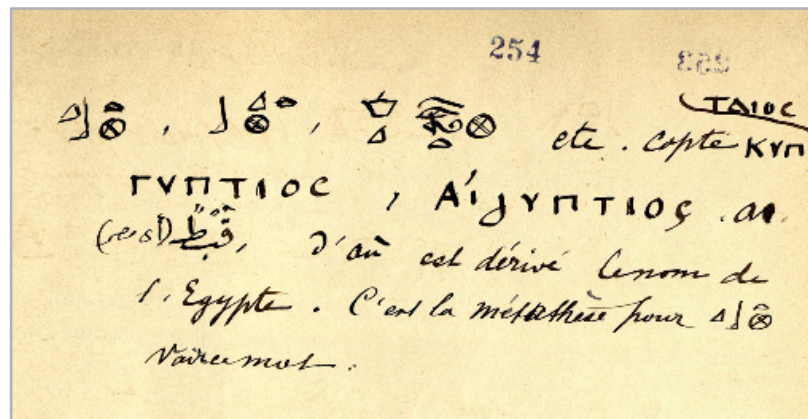 254
ΤΑΙΟC
, , etc. Copte ΚΥΠ
ΓΥΠΤΙΟC , Αἰγυπτιος . ar.
قبط, d'où est dérivé le nom de
l'Egypte. C'est la métathèse pour
Voir ce mot.